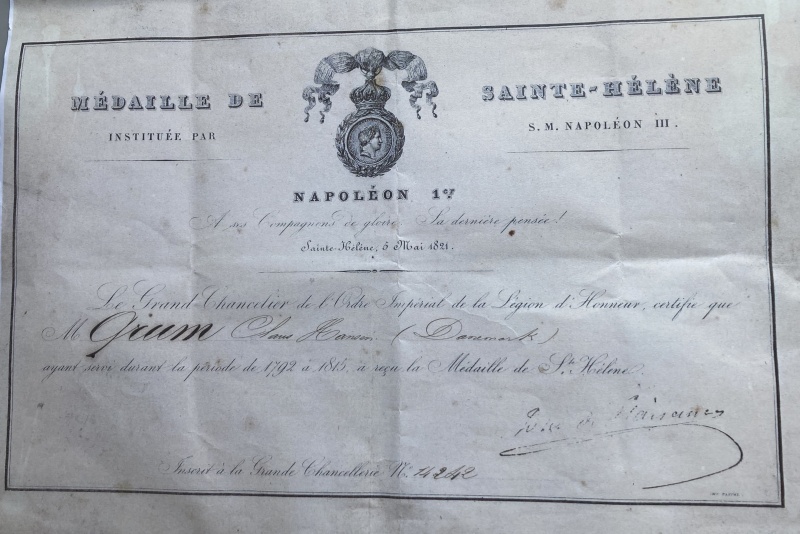 MÉDAILLE DE SAINTE-HÉLÈNE
INSTITUÉE PAR S. M. NAPOLÉON III.
NAPOLÉON 1er
A ses Compagnons de gloire Sa dernière pensée!
Sainte-Hélène, 5 Mai 1821.
Le Grand-Chancelier de l'Ordre Impérial de la Légion d'Honneur, certifie que
M Grum Hansen (Danemark)
ayant servi durant la période de 1792 à 1815, a reçu la Médaille de Ste Hélène.
Inscrit à la Grande Chancellerie No. 14242